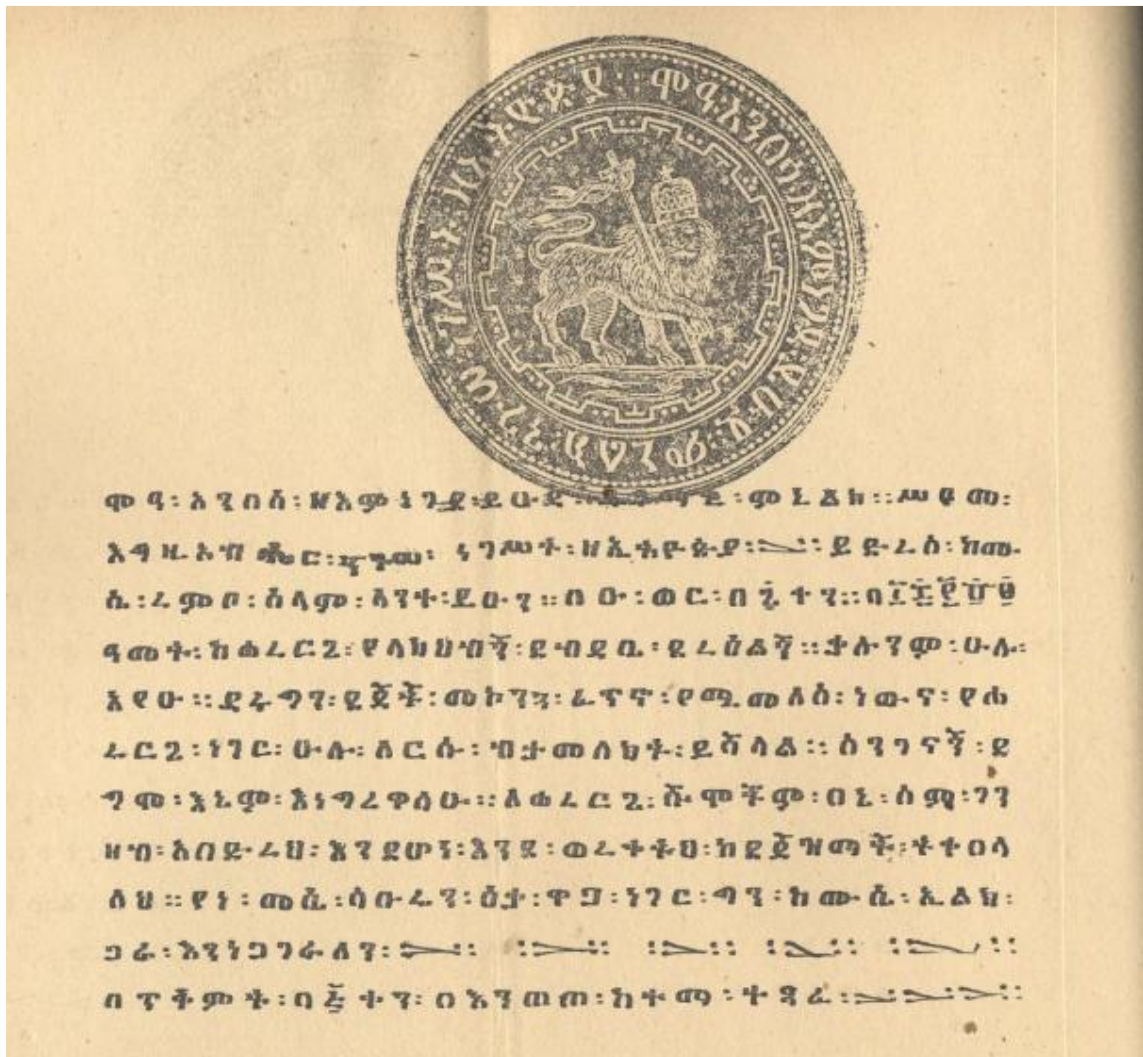 ሞዓ አንበሳ ዘእምነገደ ይሁዳ ዳግማዊ ምኒልክ ንጉሠ ነገሥት ዘኢትዮጵያ
ሞዓ፡አንበሳ፡ዘእምነገደ፡ይሁዳ፡፡ዳግማዊ፡ምኒልክ፡፡ሥዩመ፡
እግዚአብሔር፡ንጉሠ፡ነገሥት፡ዘኢትዮጵያ፡፡ይድረስ፡ከሙ
ሴ፡ረምቦ፡ሰላም፡ላንተ፡ይሁን፡፡በዑ፡ወር፡በ፯ተን፡፡ባ፲፰፻፹፱
ዓመት፡ከሐረርጌ፡የላክህብኝ፡ደብዳቤ፡ደረሰልኝ፡፡ቃሉንም፡ሁሉ፡
አየሁ፡፡ዳሩግን፡ደጃች፡መኮንን፡ፈጥኖ፡የሚመለስ፡ነውና፡የሐ
ረርጌ፡ነገር፡ሁሉ፡ለርሱ፡ብታመለክት፡ይሻላል፡፡ስንገናኝ፡ደ
ግሞ፡እኔም፡እነግረዋለሁ፡፡ለሐረርጌ፡ሹሞችም፡በኔ፡ስም፡ገን
ዘብ፡አበድረህ፡እንደሆነ፡እንደ፡ወረተትህ፡ከደጃዝማች፡ትተበላ
ለህ፡፡የነ፡መሴ፡ሳዑሬን፡ዕታ፡ዋጋ፡ነገር፡ግን፡ከሙሴ፡ኢልክ፡
ጋራ፡እንነጋገራለን፡፡
በጥቅምት፡ባ፭ተን፡በእንወጠ፡ከተማ፡ተጻፈ፡፡